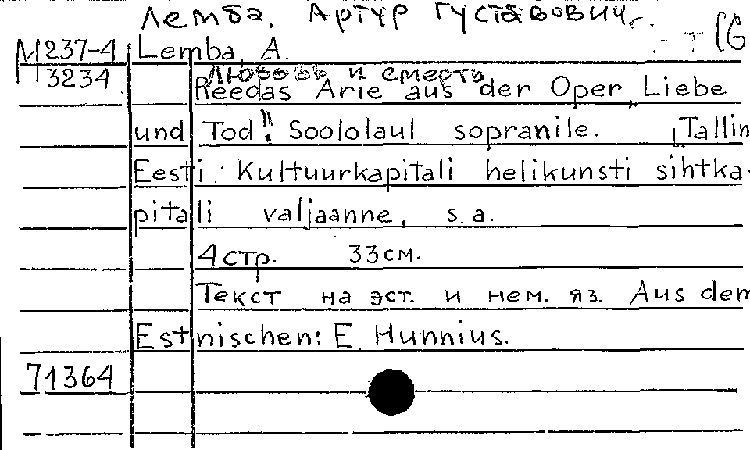 Лемба, Артур Густавович.
М237-4 Lemba, A.
3234 Любовь и смерть
Reedas Arie aus der Oper „Liebe
und Tod". Soololaul sopranile. [Tallin
Eesti Kultuurkapitali helikunsti sihtka-
pitali valjaanne, s.a.
4 стр. 33 см.
Текст на эст. и нем. яз. Aus dem
Estnischen: E. Hunnius.
71364